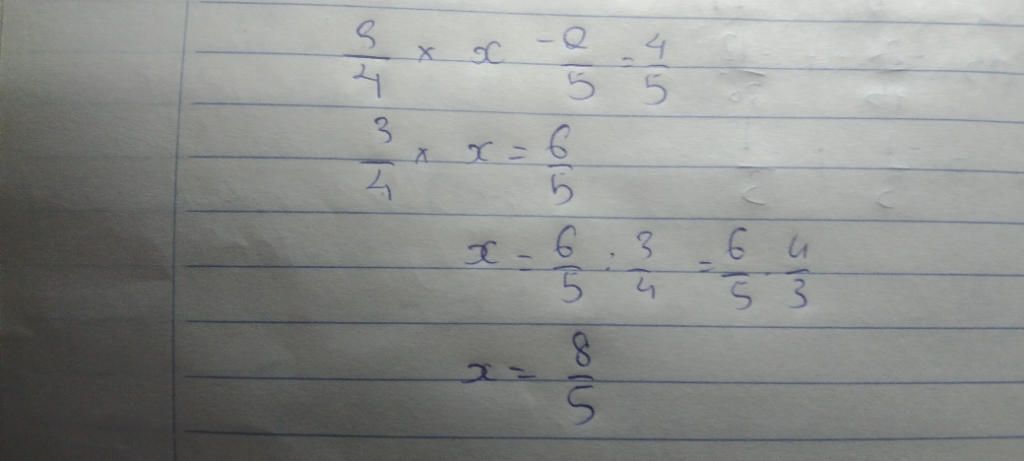 3/4 × x - 2/5 = 4/5
3/4 × x = 6/5
x = 6/5 : 3/4 = 6/5 . 4/3
x = 8/5